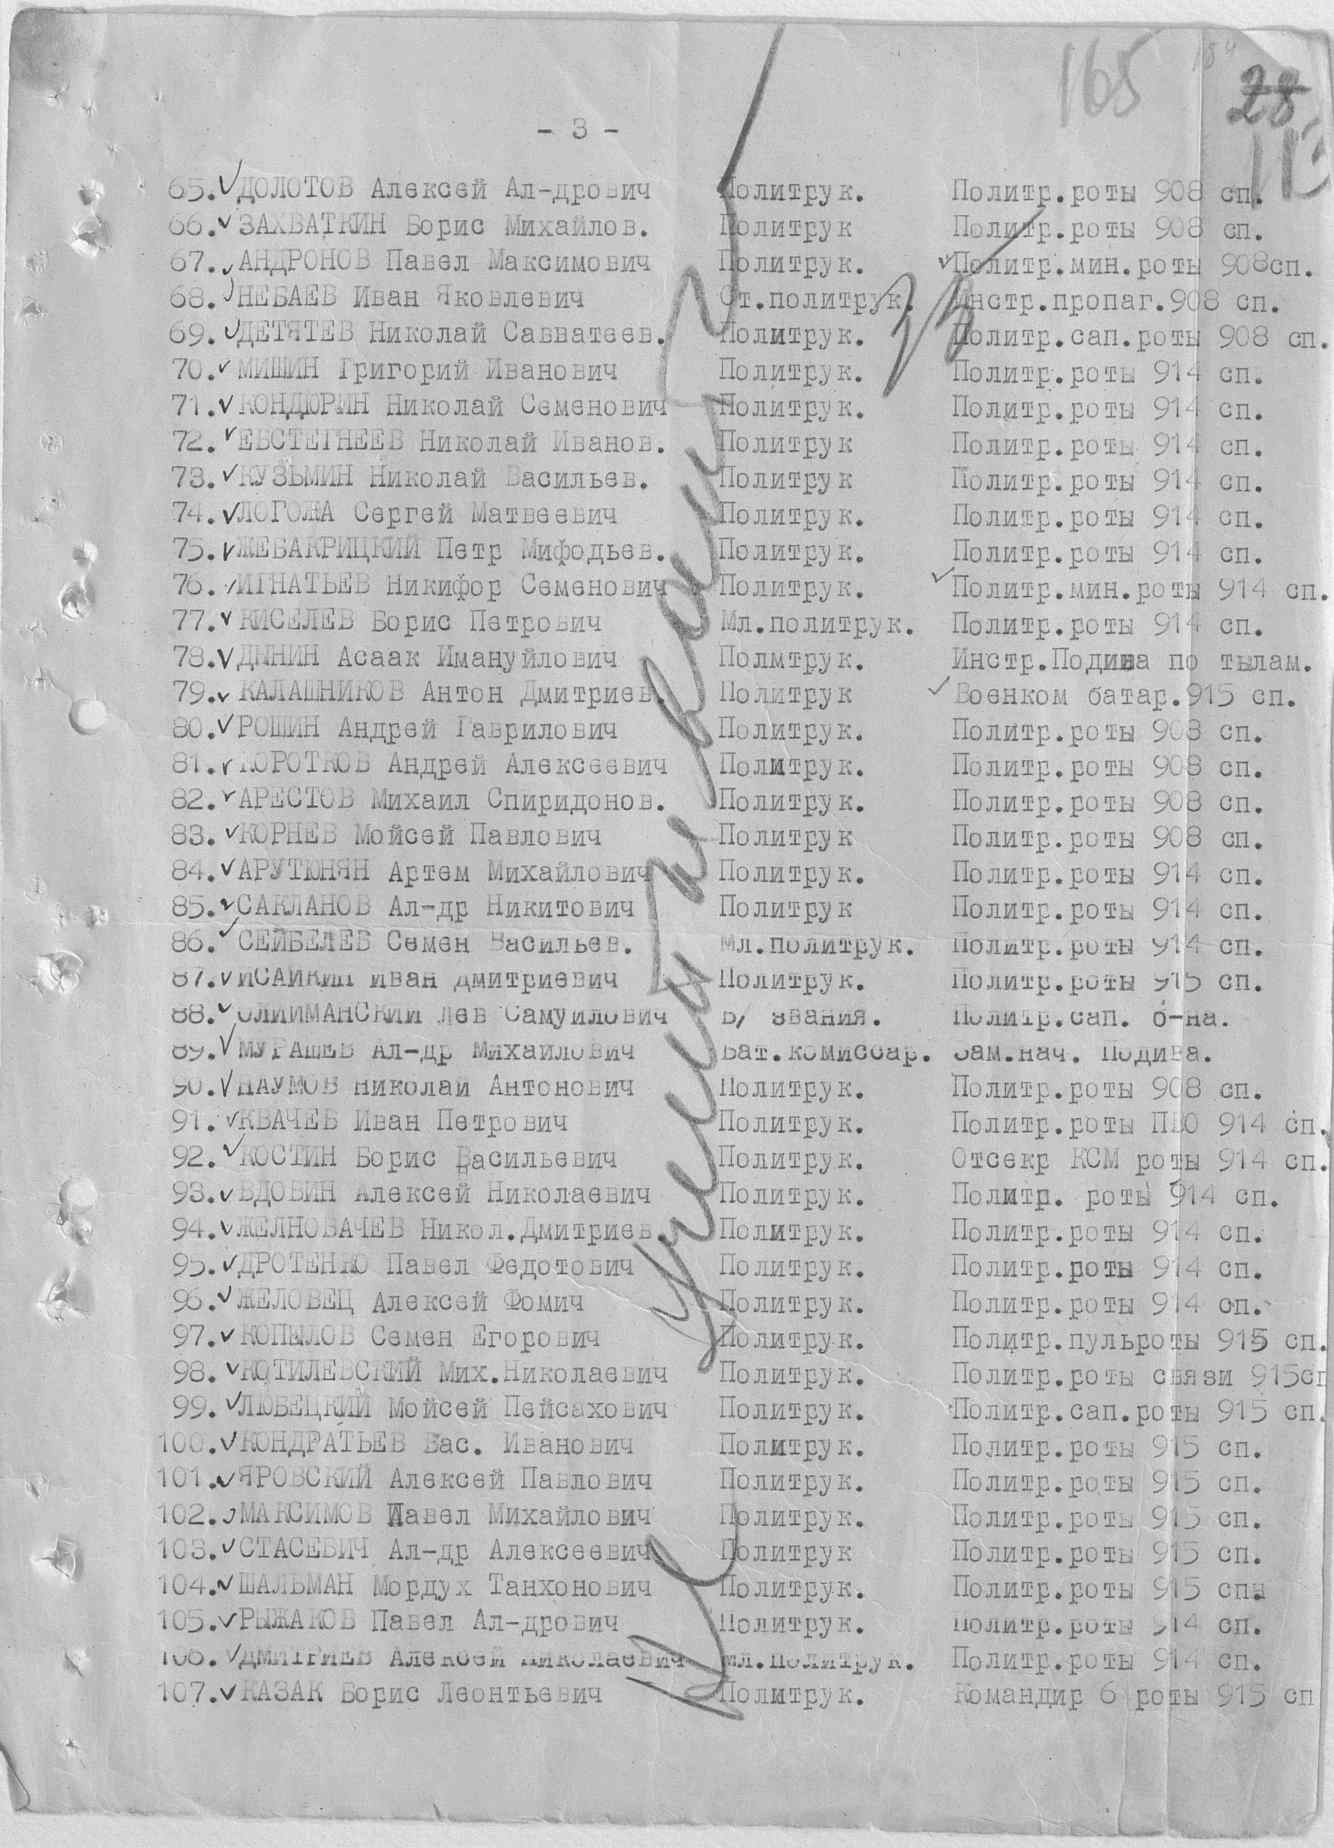 165
28
- 3 -
65. ДОЛОТОВ Алексей Ал-дрович Политрук. Политр.роты 908 сп.
66. ЗАХВАТКИН Борис Михайлов. Политрук Политр.роты 908 сп.
67. АНДРОНОВ Павел Максимович Политрук. Политр.мин.роты 908сп.
68. НЕБАЕВ Иван Яковлевич Ст.политрук. Инстр.пропаг.908 сп.
69. ДЕТЯТЕВ Николай Савватеев. Политрук. Политр.сап.роты 908 сп.
70. МИШИН Григорий Иванович Политрук. Политр.роты 914 сп.
71. КОНДЮРИН Николай Семенович Политрук. Политр.роты 914 сп.
72. ЕВСТЕГНЕЕВ Николай Иванов. Политрук Политр.роты 914 сп.
73. КУЗЬМИН Николай Васильев. Политрук Политр.роты 914 сп.
74. ЛОГОЖА Сергей Матвеевич Политрук. Политр.роты 914 сп.
75. ЖЕБАКРИЦКИЙ Петр Мифодьев. Политрук. Политр.роты 914 сп.
76. ИГНАТЬЕВ Никифор Семенович Политрук. Политр.мин.роты 914 сп.
77. КИСЕЛЕВ Борис Петрович Мл.политрук. Политр.роты 914 сп.
78. ДЫНИН Асаак Имануйлович Полмтрук. Инстр.Подива по тылам.
79. КАЛАШНИКОВ Антон Дмитриев. Политрук Военком батар.915 сп.
80. РОШИН Андрей Гаврилович Политрук. Политр.роты 908 сп.
81. КОРОТКОВ Андрей Алексеевич Политрук. Политр.роты 908 сп.
82. АРЕСТОВ Михаил Спиридонов. Политрук. Политр.роты 908 сп.
83. КОРНЕВ Мойсей Павлович Политрук Политр.роты 908 сп.
84. АРУТЮНЯН Артем Михайлович Политрук. Политр.роты 914 сп.
85. САКЛАНОВ Ал-др Никитович Политрук Политр.роты 914 сп.
86. СЕЙБЕЛЕВ Семен Васильев. Мл.политрук. Политр.роты 914 сп.
87. ИСАЙКИН Иван Дмитриевич Политрук. Политр.роты 915 сп.
88. Лев Самуилович Б/ звания. Политр.сап. б-на.
89. МУРАШЕВ Ал-др Михайлович Бат.комиссар. Зам.нач. Подива.
90. НАУМОВ Николай Антонович Политрук. Политр.роты 908 сп.
91. КВАЧЕВ Иван Петрович Политрук. Политр.роты ПВО 914 сп.
92. КОСТИН Борис Васильевич Политрук. Отсекр КСМ роты 914 сп.
93. ВДОВИН Алексей Николаевич Политрук. Политр. роты 914 сп.
94. ЖЕЛНОВАЧЕВ Никол.Дмитриев. Политрук. Политр.роты 914 сп.
95. ДРОТЕНКО Павел Федотович Политрук. Политр.роты 914 сп.
96. ЖЕЛОВЕЦ Алексей Фомич Политрук. Политр.роты 914 сп.
97. КОПЫЛОВ Семен Егорович Политрук. Политр.пульроты 915 сп.
98. КОТИЛЕВСКИЙ Мих.Николаевич Политрук. Политр.роты связи 915сп
99. ЛЮБЕЦКИЙ Мойсей Пейсахович Политрук. Политр.сап.роты 915 сп.
100. КОНДРАТЬЕВ Вас. Иванович Политрук. Политр.роты 915 сп.
101. ЯРОВСКИЙ Алексей Павлович Политрук. Политр.роты 915 сп.
102. МАКСИМОВ Павел Михайлович Политрук. Политр.роты 915 сп.
103. СТАСЕВИЧ Ал-др Алексеевич Политрук Политр.роты 915 сп.
104. ШАЛЬМАН Мордух Танхонович Политрук. Политр.роты 915 сп.
105. РЫЖАКОВ Павел Ал-дрович Политрук. Политр.роты 914 сп.
106. ДМИТРИЕВ Алексей Николаевич Мл.политрук. Политр.роты 914 сп.
107. КАЗАК Борис Леонтьевич Политрук. Командир 6 роты 915 сп